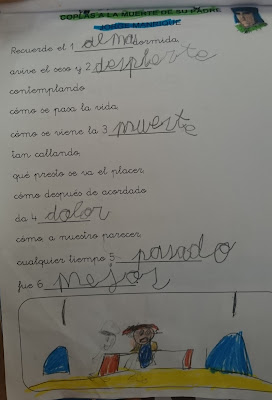 COPLAS A LA MUERTE DE SU PADRE
JORGE MANRIQUE
Recuerde el 1 alma dormida,
avive el seso y 2 despierte
contemplando
cómo se pasa la vida,
cómo se viene la 3 muerte
tan callando,
qué presto se va el placer,
cómo después de acordado
da 4 dolor
cómo, a nuestro parecer,
cualquier tiempo 5 pasado
fue 6 mejor